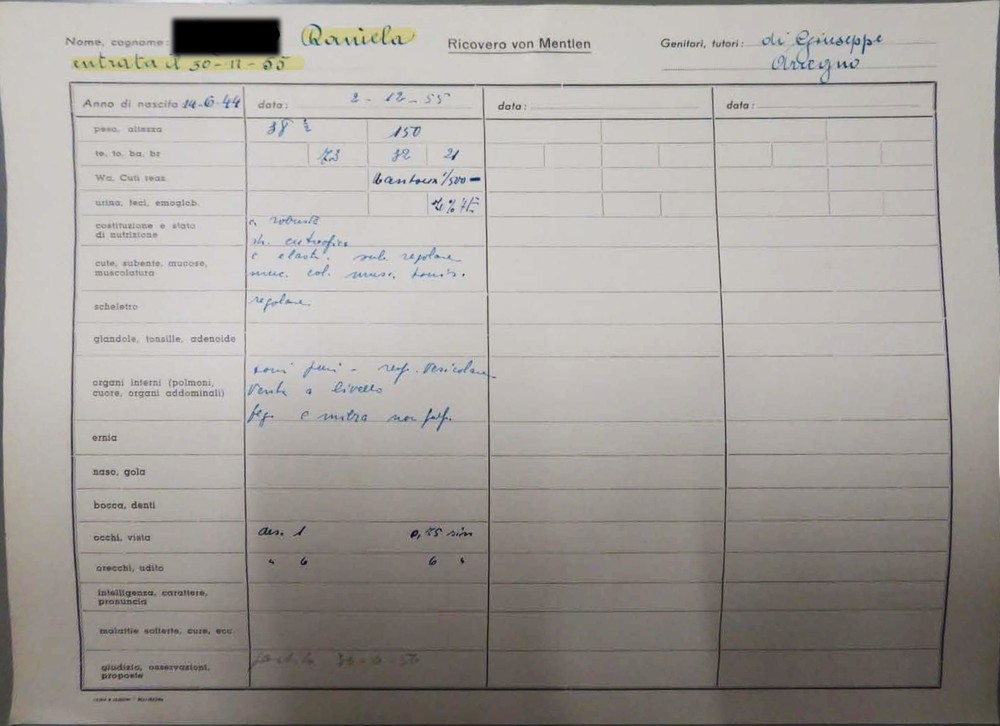 Nome, cognome: Daniela
entrata il 30-11-55
Ricovero von Mentlen
Genitori, tutori: di Giuseppe
Arcegno
Anno di nascita 14-6-44 data: 2-12-55 data: data:
peso, altezza 38 ½ 150
te, to, ba, bz 73 82 21
Wa, Cuti reaz. Mantoux 1/500 -
urina, feci, emoglob.
costituzione e stato
di nutrizione
c. robusta
st. eutrofico
cute, subente, mucose,
muscolatura
c elast. sub. regolare
muc. col. musc. tonis.
scheletro regolare
glandole, tonsille, adenoide
organi interni (polmoni,
cuore, organi addominali)
toni puri - resp. vescicolare
Ventre a livello
feg. e milza non palp.
ernia
naso, gola
bocca, denti
occhi, vista des. 1 0,75 sin
orecchi, udito " 6 6 "
intelligenza, carattere,
pronuncia
malattie sofferte, cure, ecc.
giudizio, osservazioni,
proposte
partita 30-6-56